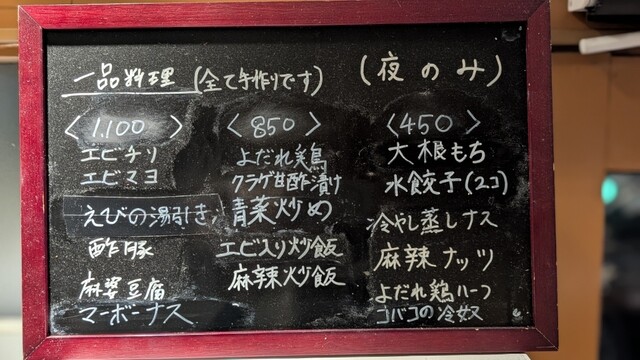 一品料理 (全て手作りです) (夜のみ)
〈1.100〉
エビチリ
エビマヨ
えびの湯引き
酢豚
麻婆豆腐
マーボーナス
〈850〉
よだれ鶏
クラゲ甘酢漬け
青菜炒め
エビ入り炒飯
麻辣炒飯
〈450〉
大根もち
水餃子(2コ)
冷やし蒸しナス
麻辣ナッツ
よだれ鶏ハーフ
コバコの冷奴